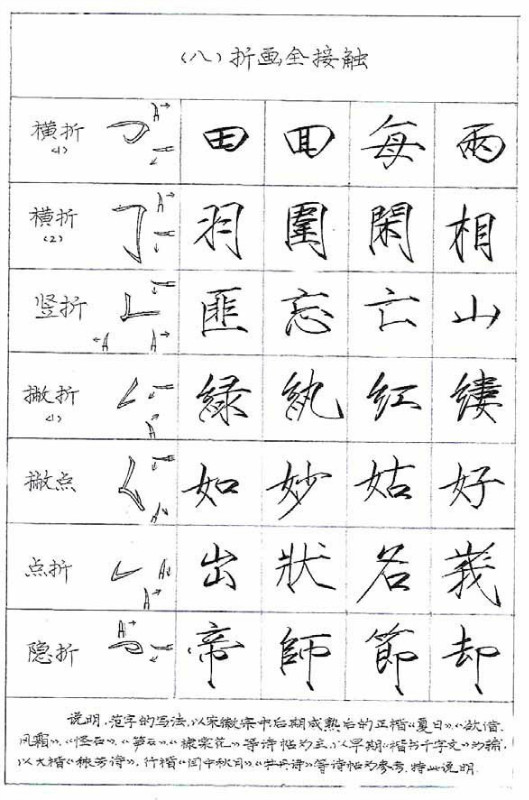 (八)折画全接触
横折(1) 田 囬 每 兩
横折(2) 羽 圍 閑 相
竖折 匪 忘 亡 山
撇折(1) 緑 紈 红 縷
撇点 如 妙 姑 好
点折 出 狀 名 義
隐折 帝 師 節 却
说明.范字的写法,以宋徽宗中后期成熟后的正楷“夏日”.“欲借
风霜”,“怪石”、“笋石”,“棣棠花”等诗帖为主,以早期“楷书千字文”为辅,
以大楷“秾芳诗”,行楷“闰中秋月”,“牡丹诗”等诗帖为参考.特此说明.